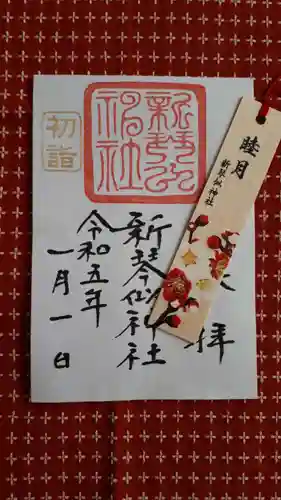 初詣
新琴似神社
拝
新琴似神社
令和五年
一月一日
睦月
新琴似神社